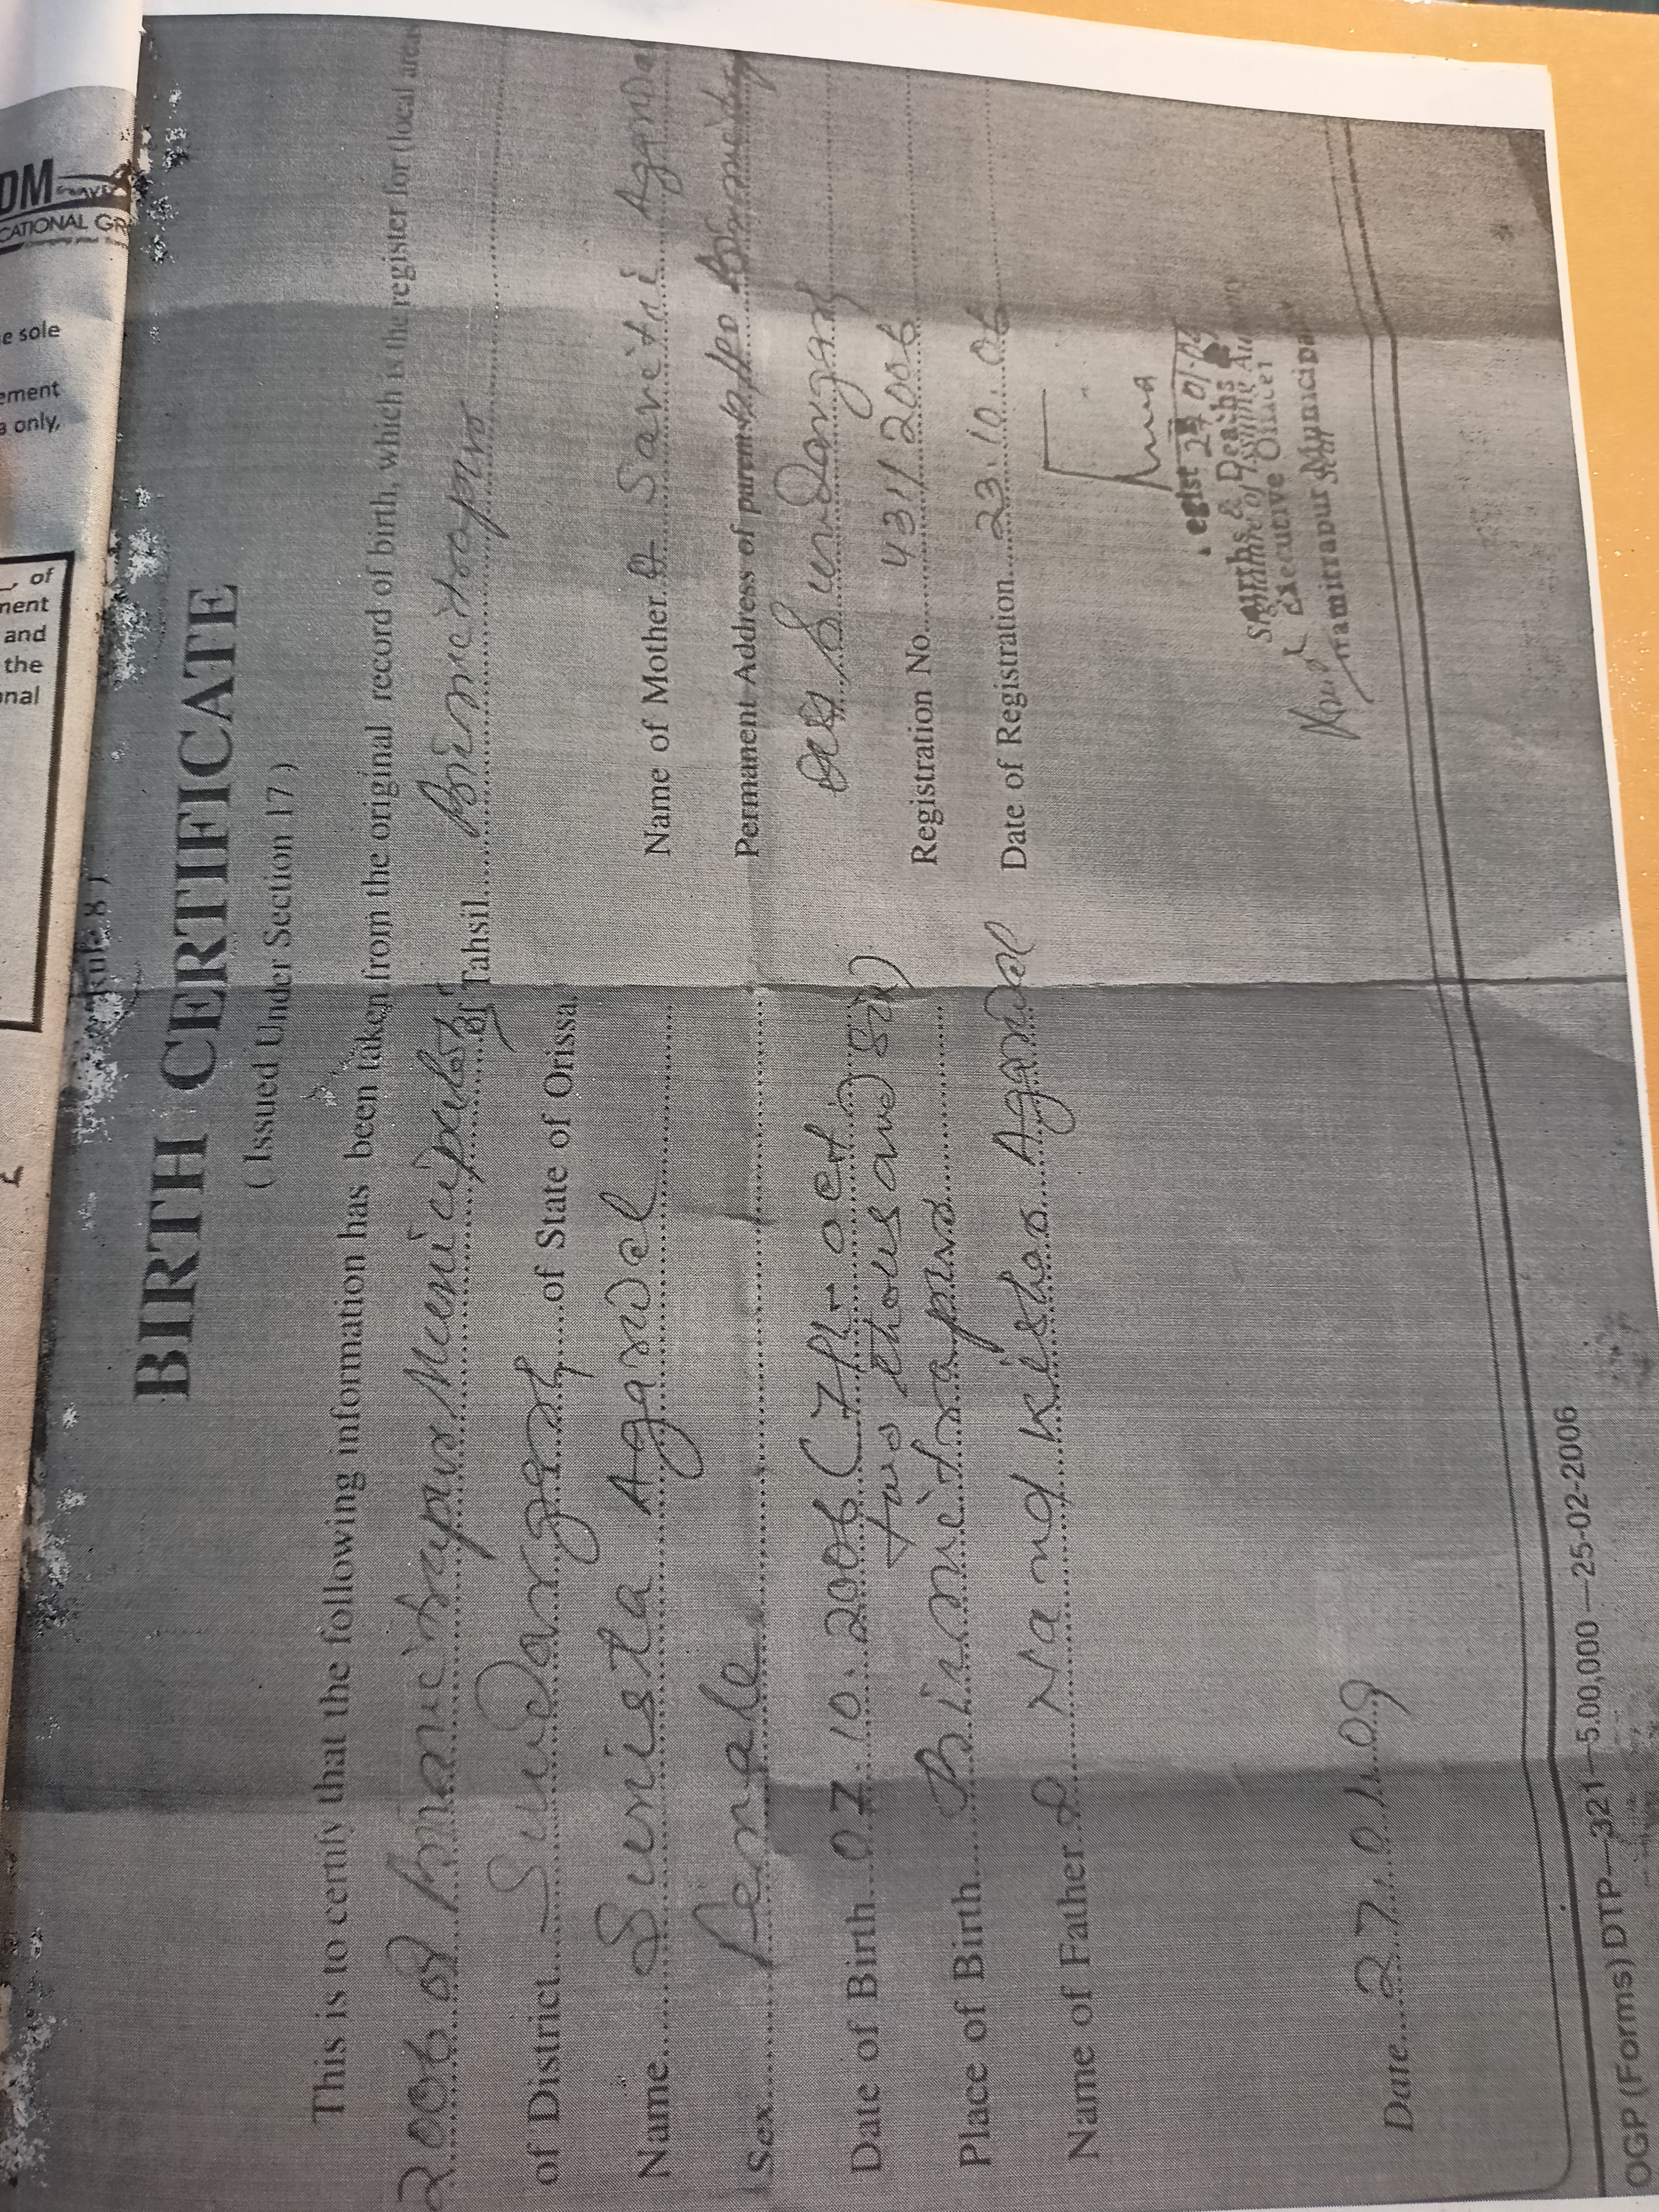 DM
CATIONAL GR
e sole
ement
a only,
of
ment
and
the
onal
BIRTH CERTIFICATE
( Issued Under Section 17 )
This is to certify that the following information has been taken from the original record of birth, which is the register for (local area
2006 of Biramitrapur Municipality of Tahsil Biramitrapur
of District Sundargarh of State of Orissa
Name Sunista Agarwal
Name of Mother Savitri Agarwal
Sex Female
Permanent Address of parents
Dist Sundargarh
Date of Birth 07.10.2006 (7th - oct
two thousand six)
Registration No. 431/2006
Place of Birth Biramitrapur
Date of Registration 23.10.06
Name of Father Nand Kishor Agarwal
27.01.09
Births & Deaths
Signature of Issuing Au
Executive Officer
Municipa
Date 27.01.09
OGP (Forms) DTP—321—5,00,000—25-02-2006